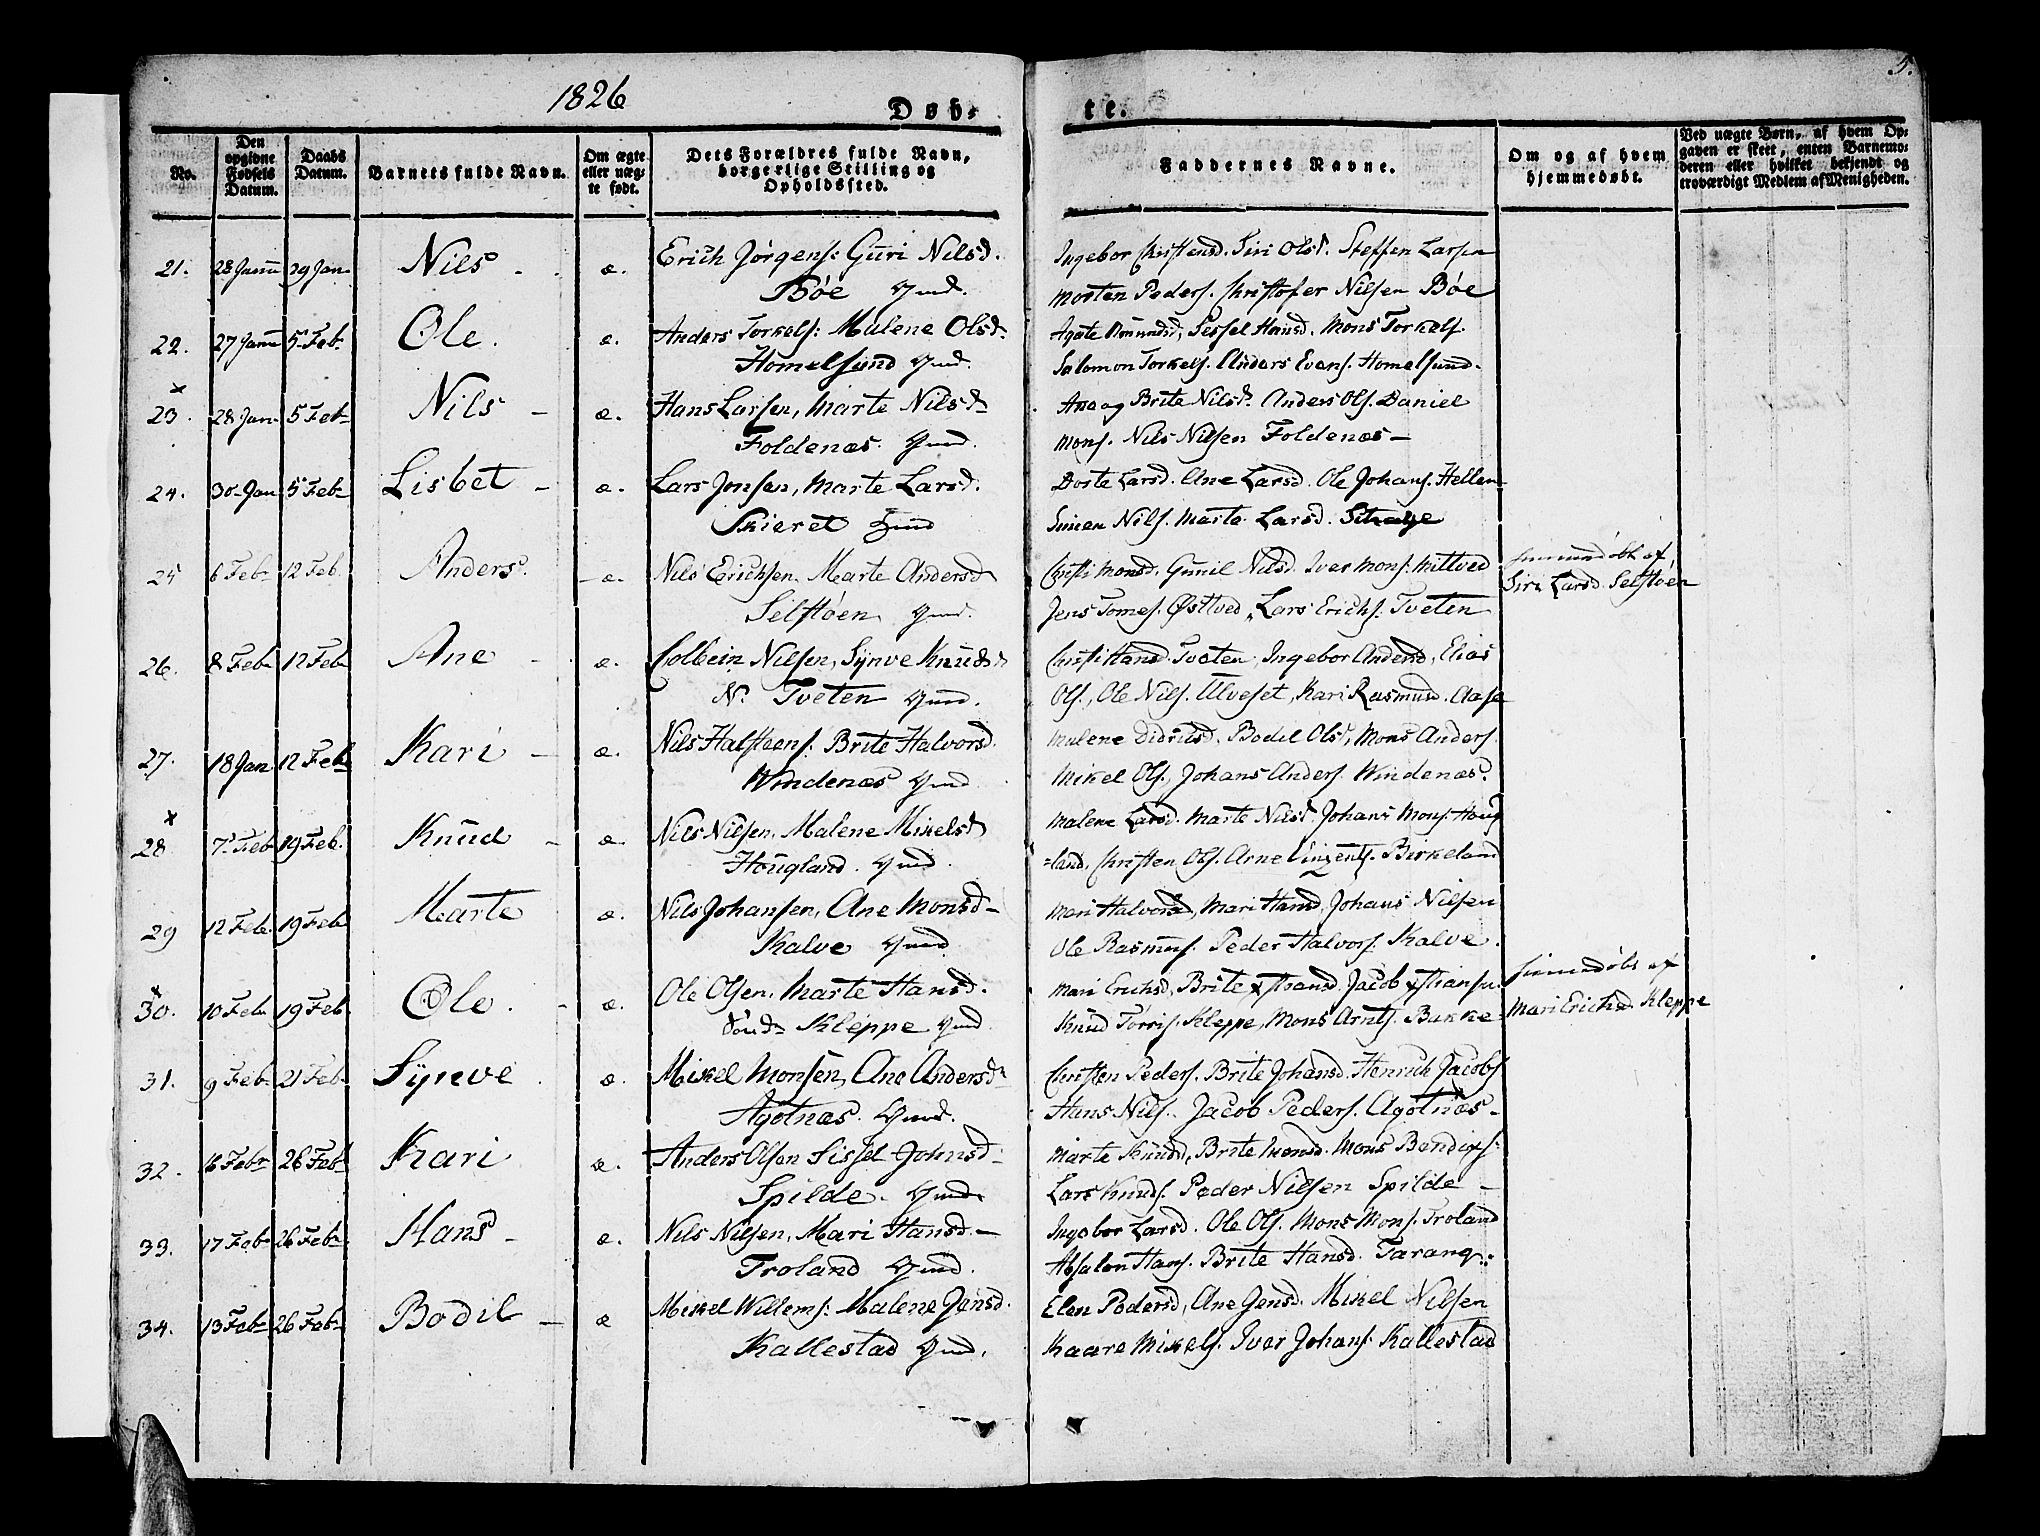 5.
1826
Døb-
te.
No.
Den opgivne Fødsels Datum.
Daabs Datum.
Barnets fulde Navn.
Om ægte eller uægte født.
Dets Forældres fulde Navn, borgerlige Stilling og Opholdssted.
Faddernes Navne.
Om og af hvem hjemmedøbt.
Ved uægte Børn, af hvem Opgaven er skeet, enten Barnemoderen eller hvilket bekjendt og troværdigt Medlem af Menigheden.
21. 28 Janu 29 Jan Nils æ. Erich Jørgens: Guri Nilsd. Ingebor Christensd. Siri Olsd. Steffen Larsen
Bøe Gmd. Morten Peders. Christofer Nilsen Bøe
22. 27 Janu 5 Feb. Ole. æ. Anders Torkels: Malene Olsd. Agate Sissel Hansd. Mons Torkels.
Homelsund Gmd. Salomon Torkels. Anders Evens. Homelsund.
x
23. 28 Jan 5 Feb Nils - æ. Hans Larsen, Marte Nilsd Ana og Brite Nilsd. Anders Ols. Daniel
Foldenæs. Gmd. Mons. Nils Nilsen Foldenæs
24. 30 Jan 5 Feb Lisbet - æ. Lars Jonsen, Marte Larsd. Dorte Larsd. Ane Larsd. Ole Johans. Hellen
Skieret Gmd Simen Nils. Marte Larsd.
25 6 Feb 12 Feb. Anders. - æ. Nils Erichsen. Marte Andersd Christi Monsd. Gunil Nilsd. Iver Mons. Mittved hiemmedøbt af
Selstøen Gmd. Jens Tomes. Østtved, Lars Erichs. Tveten Siri Larsd. Selstøen
26. 8 Feb 12 Feb Ane - æ. Colbein Nilsen, Synve Knudsd Christi Hansd. Tveten, Ingebor Andersd, Elias
N. Tveten Gmd. Ols, Ole Nils. Ulveset, Kari Rasmusd. Aase
27. 18 Jan 12 Feb Kari - æ. Nils Halsteens: Brite Halvorsd. Malene Didriksd. Bodil Olsd, Mons Anders.
Windenæs Gmd Mikel Ols, Johans Anders. Windenæs.
x
28 7 Feb 19 Feb. Knud - æ. Nils Nilsen, Malene Mikelsd Malene Larsd. Marte Nilsd. Johans Mons. Houg
Hougland. Gmd. =land, Christen Ols. Arne Vinzents. Birkeland
29 12 Feb 19 Feb Marte æ. Nils Johansen, Ane Monsd Mari Halvorsd, Mari Hansd, Johans Nilsen
Kalve Gmd. Ole Rasmus. Peder Halvors. Kalve.
x
30. 10 Feb 19 Feb Ole. - æ. Ole Olsen. Marte Hansd. Mari Erichsd, Brite Hansd. Jacob Hansen hiemmedøbt af
Kleppe Gmd. Knud Torris. Kleppe, Mons Arnts. Bakke Mari Erichsd Kleppe
31. 9 Feb 21 Feb Synve. æ. Mikel Monsen, Ane Andersd Christen Peders. Brite Johansd. Henrich Jacobs
Agotnæs. Gmd. Hans Nils. Jacob Peders. Agotnæs
32. 16 Feb 26 Feb Kari æ. Anders Olsen Sissel Johnsd Marte Knudsd, Brite Monsd. Mons Bendixs:
Spilde. Gmd. Lars Knuds. Peder Nilsen Spilde
33. 17 Feb 26 Feb. Hans - æ. Nils Nilsen, Mari Hansd. - Ingebor Larsd. Ole Ols. Mons Mons. Troland
Troland Gmd. Absalon Hans. Brite Hansd. Tarang.
34. 13 Feb 26 Feb Bodil - æ Mikel Willems: Malene Jensd. Elen Pedersd, Ane Jensd. Mikel Nilsen
Kallestad Gmd. Kaare Mikels. Iver Johans. Kallestad